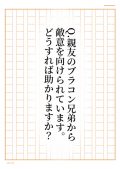 Q.親友のブラコン兄弟から
敵意を向けられています。
どうすれば助かりますか？